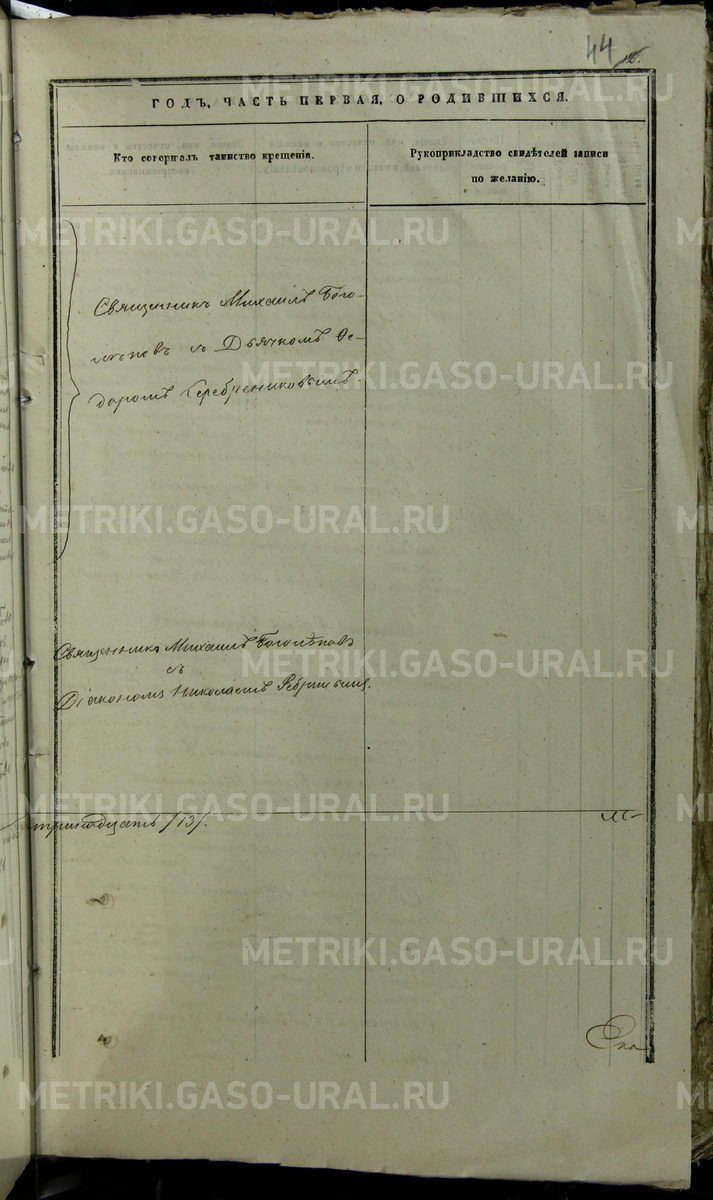 44
ГОДЪ, ЧАСТЬ ПЕРВАЯ, О РОДИВШИХСЯ.
Кто совершалъ таинство крещенія.
Рукоприкладство свидѣтелей записи
по желанію.
Священникъ Михаилъ Бого-
лѣповъ съ Дьячкомъ Ѳе-
доромъ Серебрениковымъ.
Священникъ Михаилъ Боголѣповъ
съ
Діакономъ Николаемъ
тринадцать /13/.
METRIKI.GASO-URAL.RU